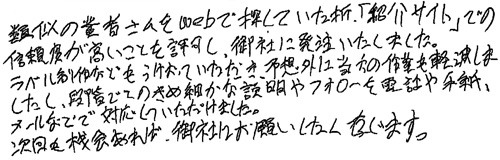 類似の業者さんをwebで探していた折、「紹介サイト」での
信頼度が高いことを評し、御社に発注いたしました。
ラベル制作なども うけおっていただき、予想外に当方の作業も軽減しま
したし、段階ごとのきめ細かな説明やフォローを電話や手紙、
メールなどで対応していただけました。
次回も機会あれば、御社にお願いしたく存じます。